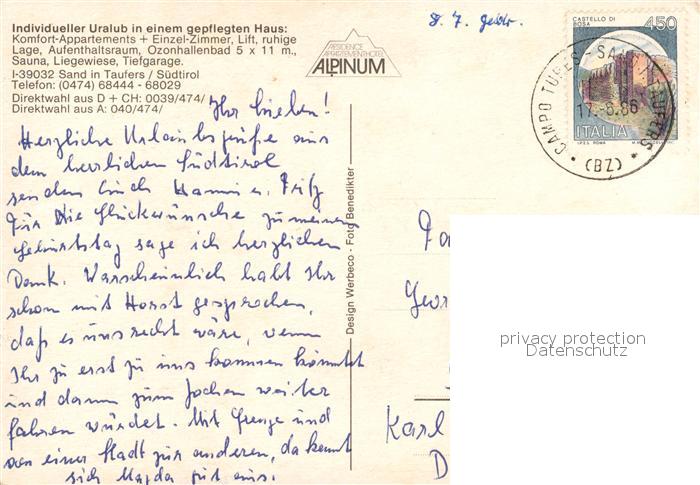 Individueller Uralub in einem gepflegten Haus:
Komfort-Appartements + Einzel-Zimmer, Lift, ruhige
Lage, Aufenthaltsraum, Ozonhallenbad 5 x 11 m.,
Sauna, Liegewiese, Tiefgarage.
I-39032 Sand in Taufers / Südtirol
Telefon: (0474) 68444 - 68029
Direktwahl aus D + CH: 0039/474/
Direktwahl aus A: 040/474/
RESIDENCE
APPARTEMENTHOTEL
ALPINUM
8. 7.
CASTELLO DI
BOSA
450
ITALIA
I.P.Z.S. ROMA
CAMPO TURES
TAUFERS
(BZ)
Ihr Lieben!
Herzliche Urlaubsgrüße aus
dem herrlichen Südtirol
senden Euch Hanni u. Fritz
Für Die Glückwünsche zu meinem
Geburtstag sage ich herzlichen
Dank. Warscheinlich habt Ihr
schon mit Horst gesprochen,
daß es uns recht wäre, wenn
Ihr zu erst zu uns kommen könntet
und dann zum Jochen weiter
fahren würdet. Mit Grenze und
von einer Stadt zur anderen, da kennt
sich Magda gut aus.
Design Werbeco - Foto Benedikter
Geor
Karl
D
privacy protection
Datenschutz